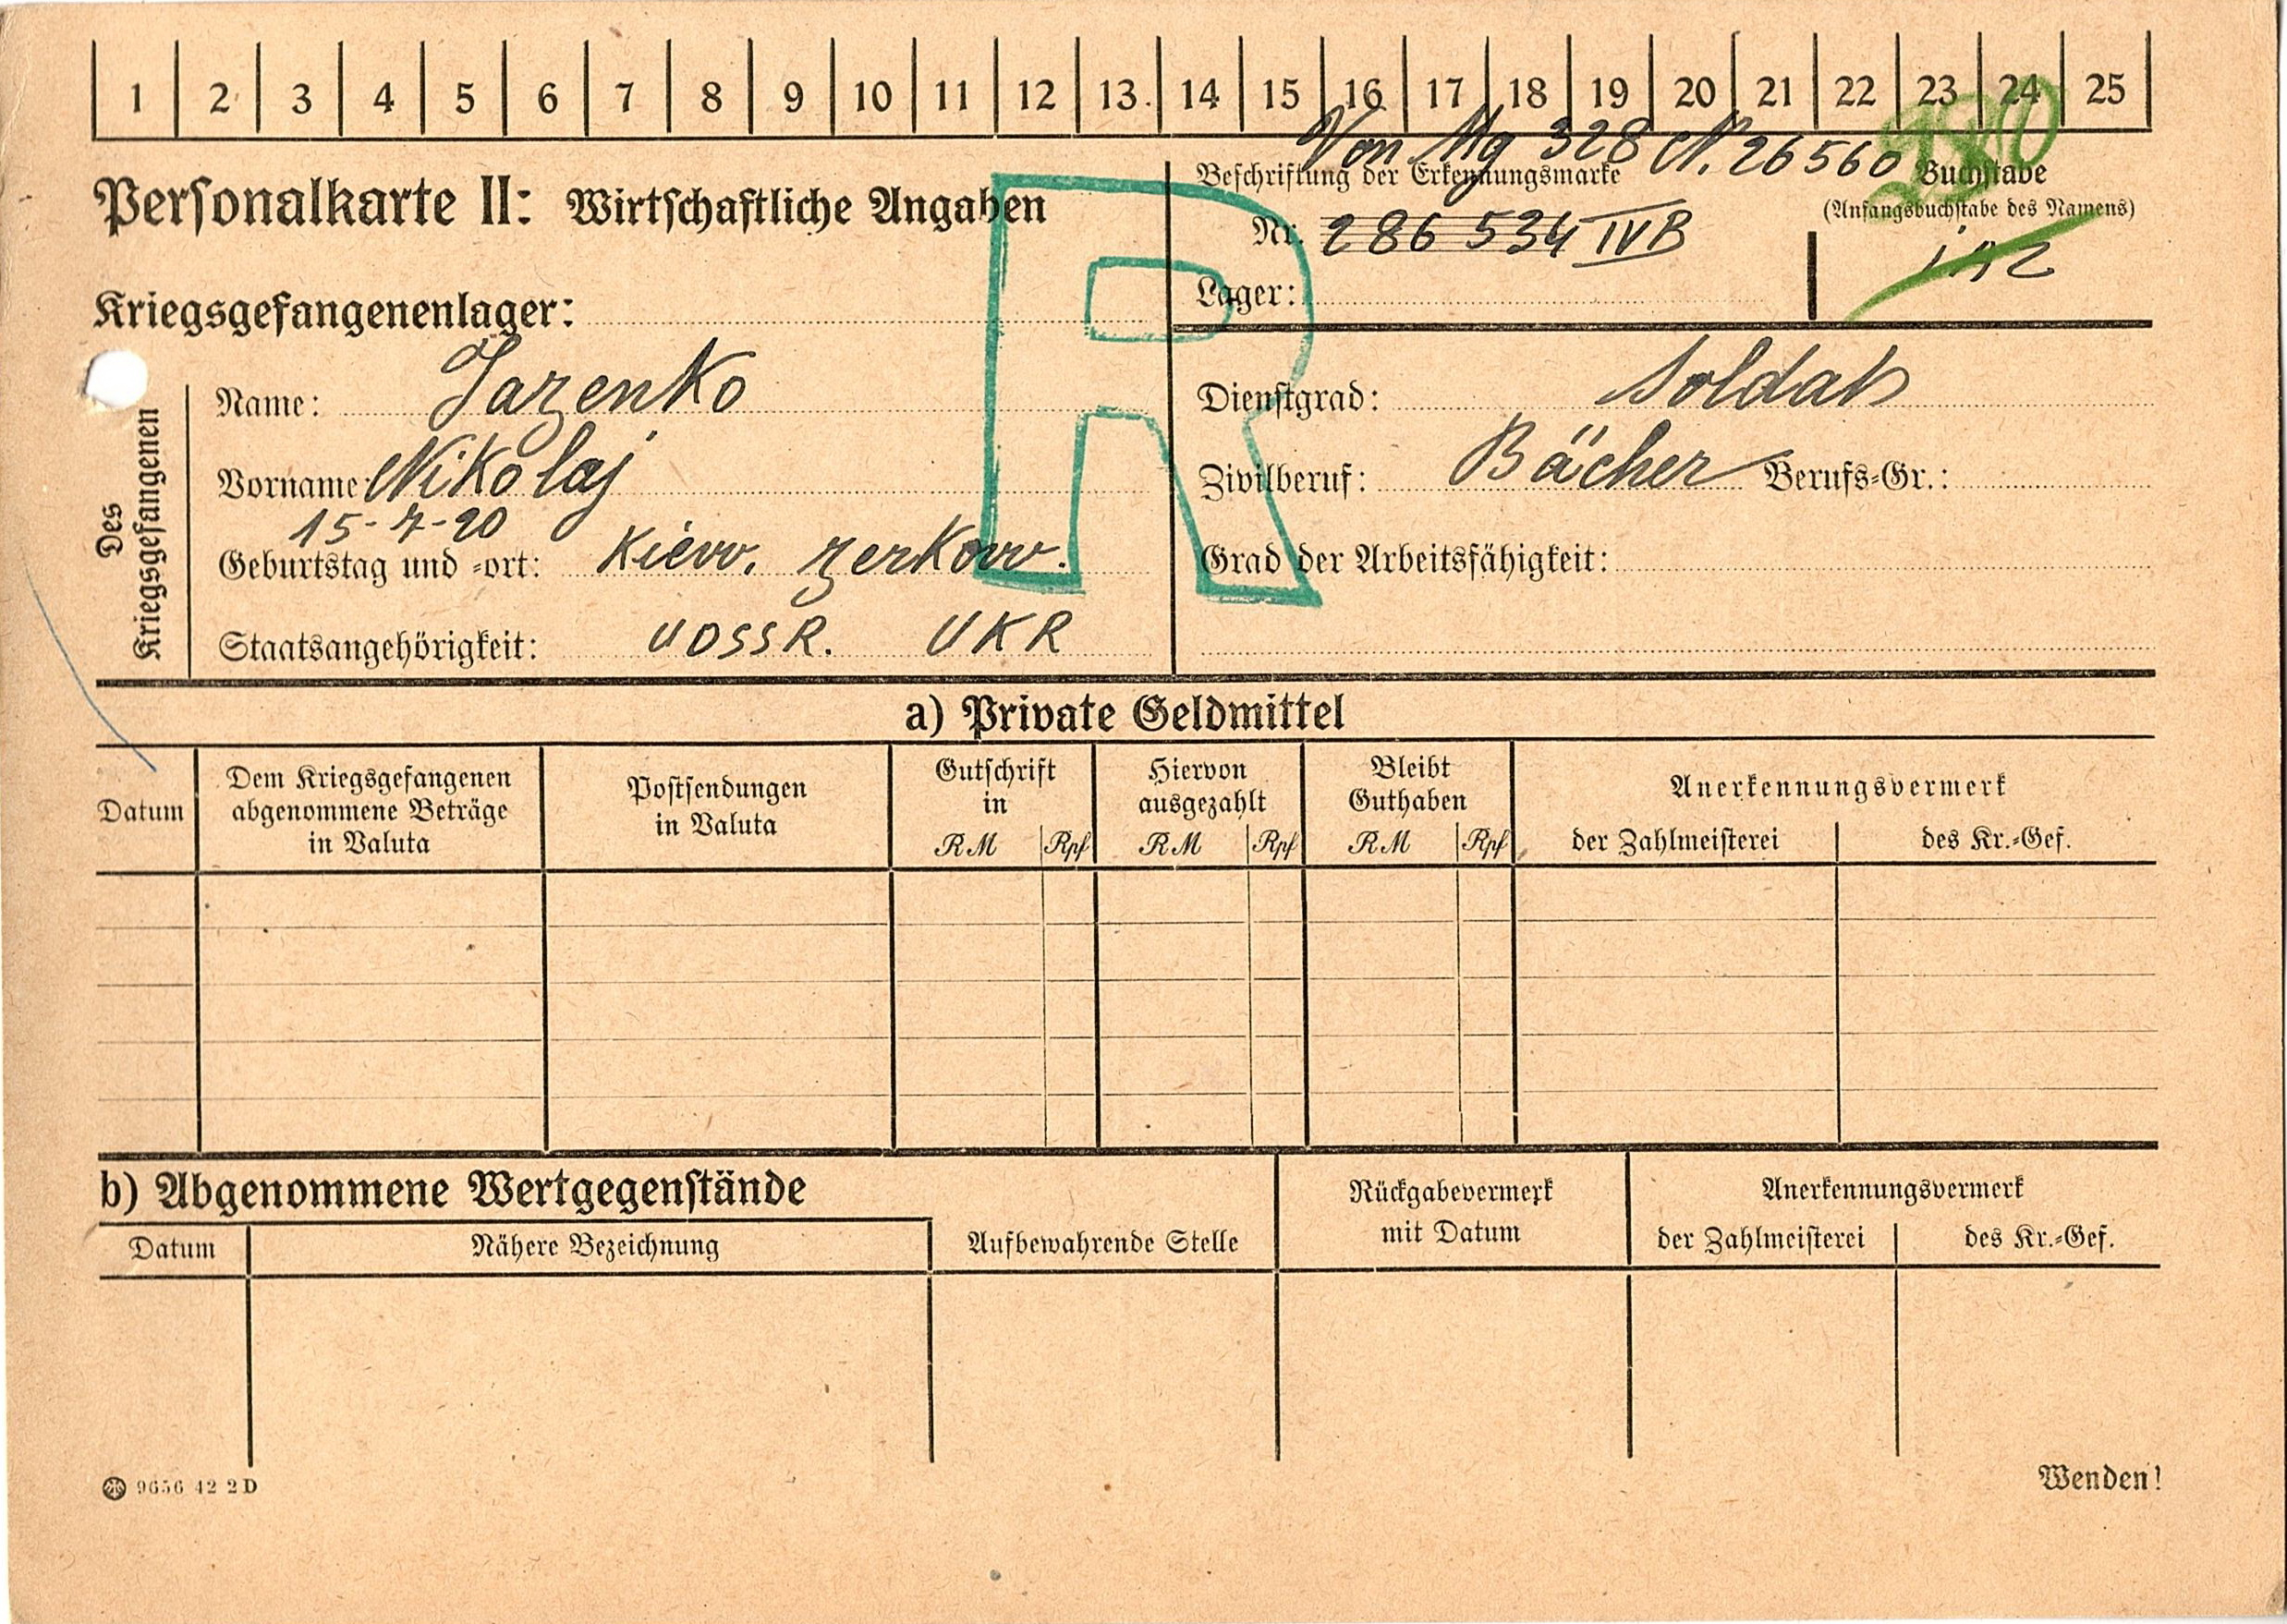 1 2 3 4 5 6 7 8 9 10 11 12 13. 14 15 16 17 18 19 20 21 22 23 24 25
Von Mg 328 N. 26560
Personalkarte II: Wirtschaftliche Angaben
Beschriftung der Erkennungsmarke
Nr. 286 534 IVB
Lager:
Buchstabe
(Anfangsbuchstabe des Namens)
Kriegsgefangenenlager:
R
Des Kriegsgefangenen
Name: Jazenko
Vorname: Nikolaj
15-7-20
Geburtstag und -ort: Kiew. Zerkow.
Staatsangehörigkeit: UDSSR. UKR
Dienstgrad: Soldat
Zivilberuf: Bächer Berufs-Gr.:
Grad der Arbeitsfähigkeit:
a) Private Geldmittel
Datum
Dem Kriegsgefangenen
abgenommene Beträge
in Valuta
Postsendungen
in Valuta
Gutschrift
in
RM Rpf
Hiervon
ausgezahlt
RM Rpf
Bleibt
Guthaben
RM Rpf
Anerkennungsvermerk
der Zahlmeisterei des Kr.-Gef.
b) Abgenommene Wertgegenstände
Datum Nähere Bezeichnung
Aufbewahrende Stelle
Rückgabevermerk
mit Datum
Anerkennungsvermerk
der Zahlmeisterei des Kr.-Gef.
9656 42 2D
Wenden!